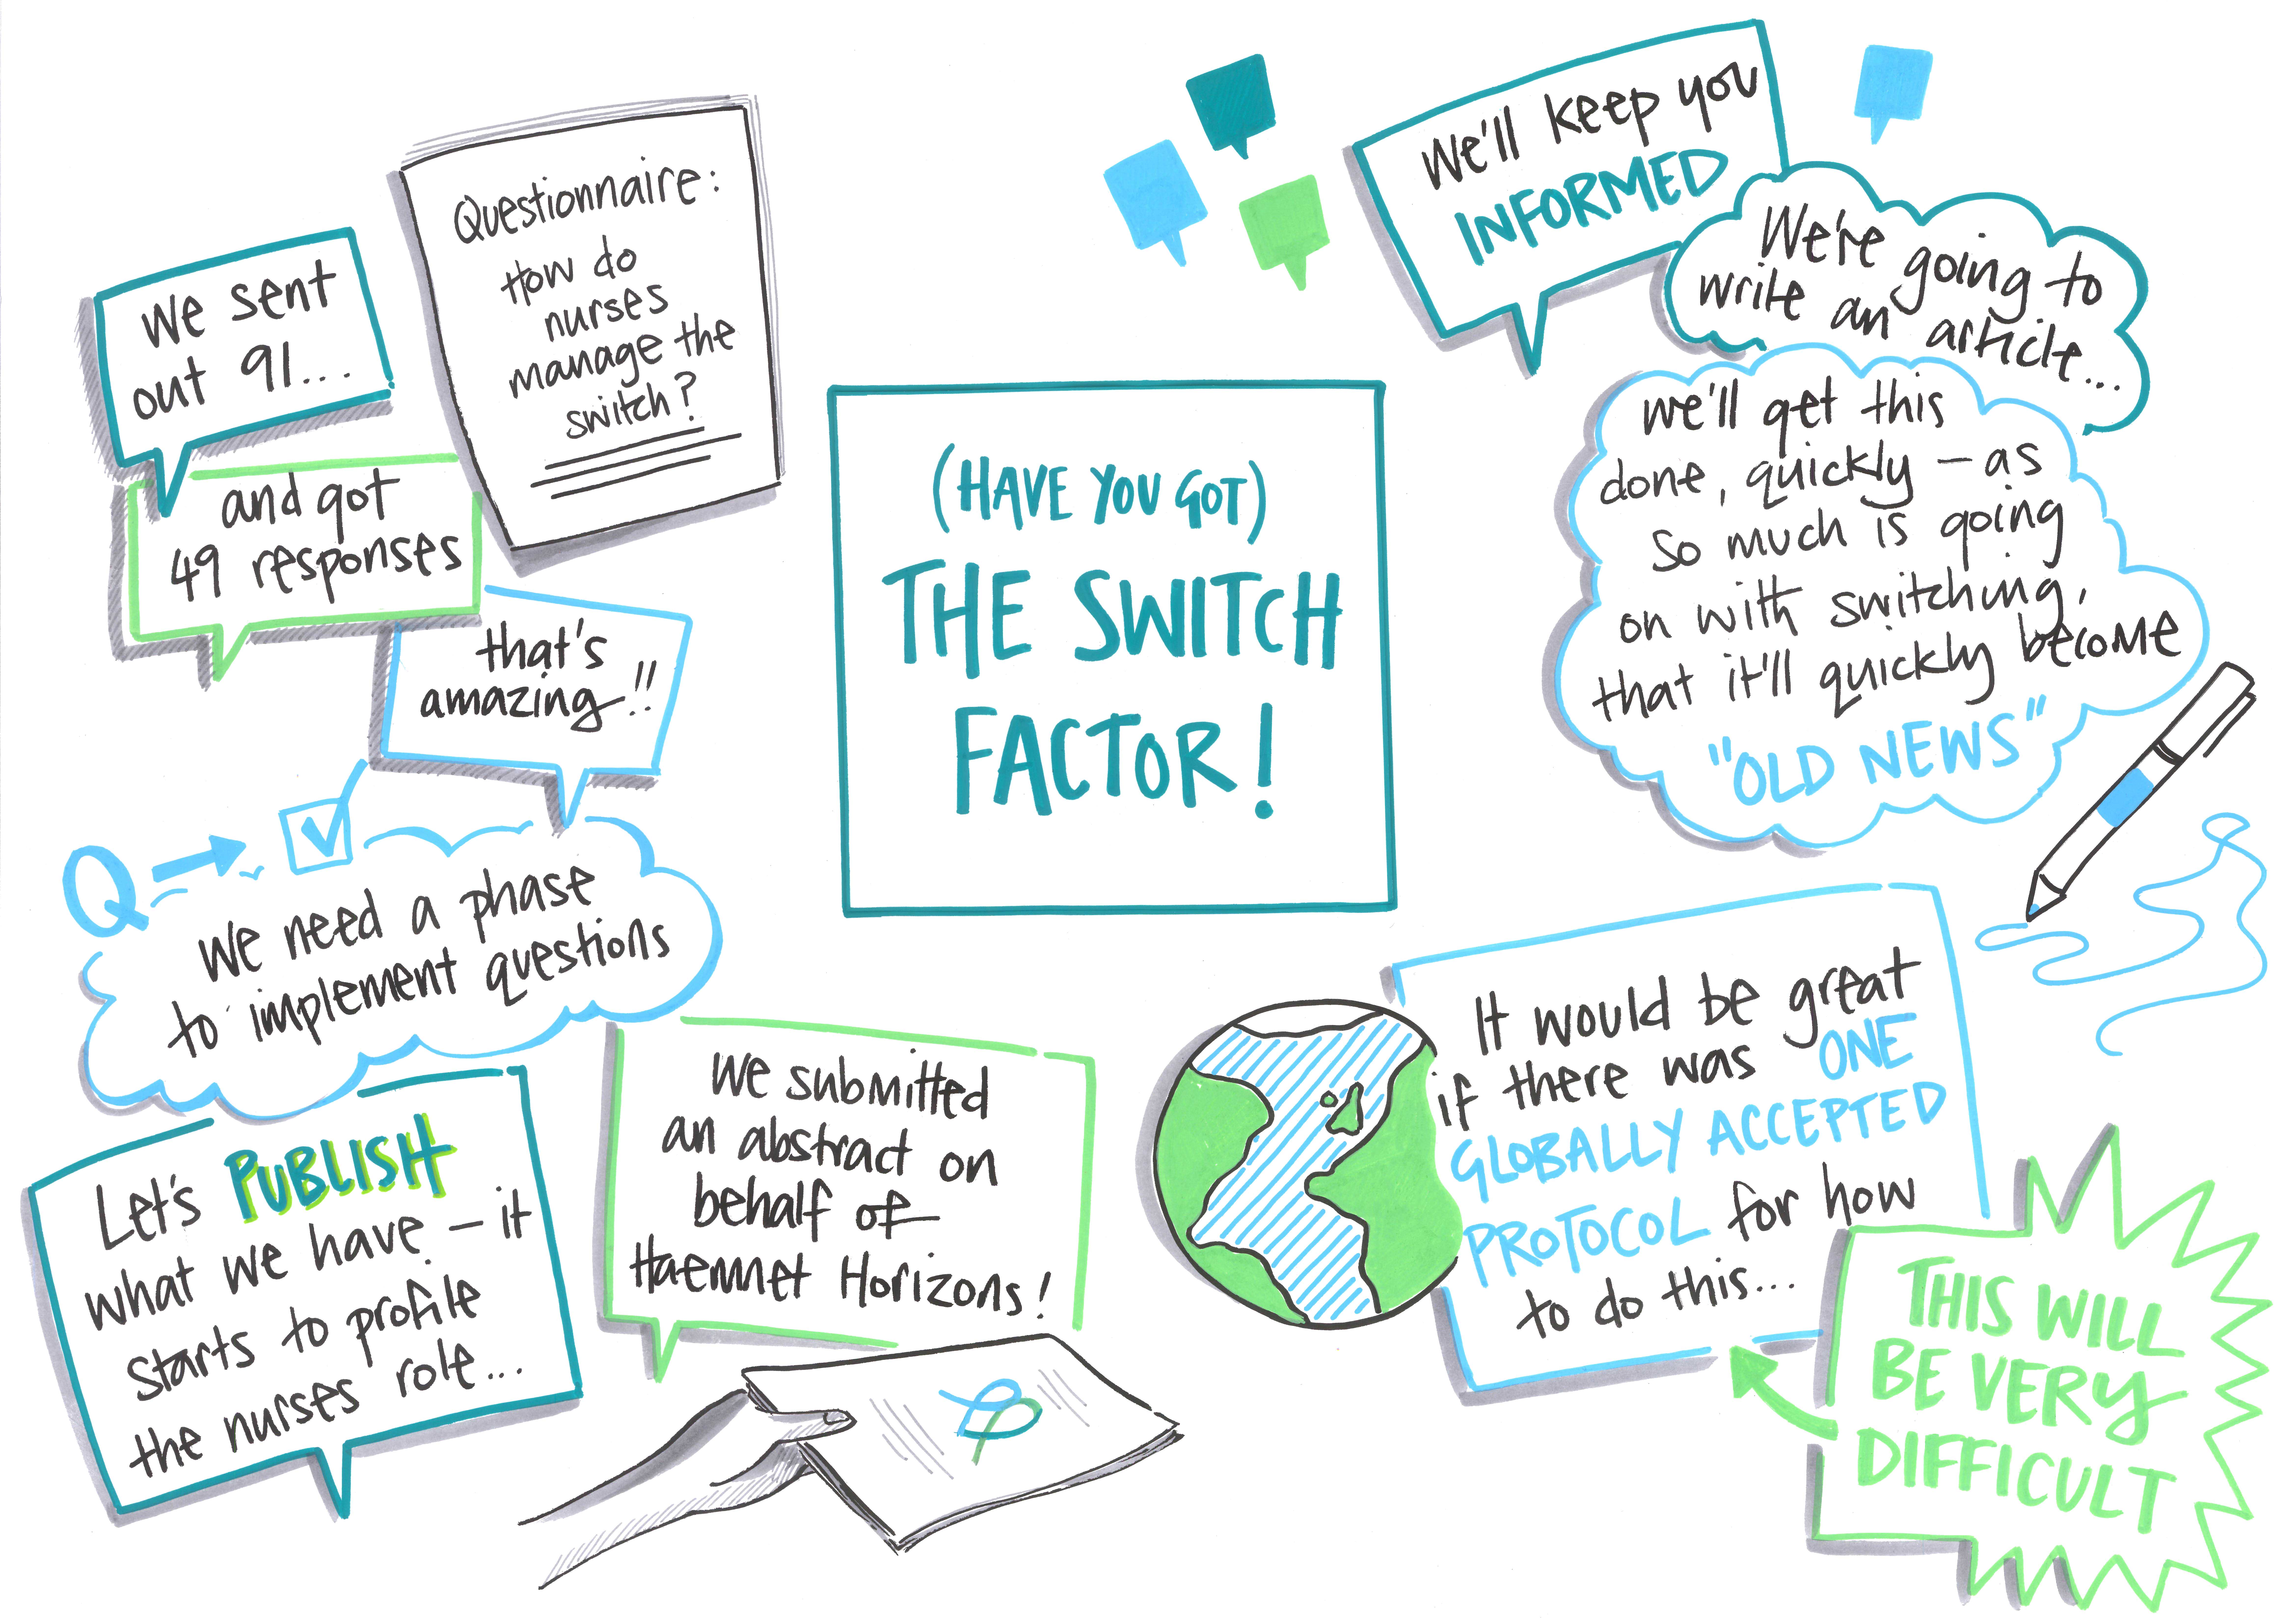 Questionnaire:
How do
nurses
manage the
switch?
We sent
out 91...
and got
49 responses
that's
amazing!!
Q
We need a phase
to implement questions
Let's PUBLISH
what we have - it
starts to profile
the nurses role...
We submitted
an abstract on
behalf of
Haemnet Horizons!
(HAVE YOU GOT)
THE SWITCH
FACTOR!
We'll keep you
INFORMED
We're going to
write an article...
we'll get this
done, quickly - as
so much is going
on with switching,
that it'll quickly become
"OLD NEWS"
It would be great
if there was ONE
GLOBALLY ACCEPTED
PROTOCOL for how
to do this...
THIS WILL
BE VERY
DIFFICULT